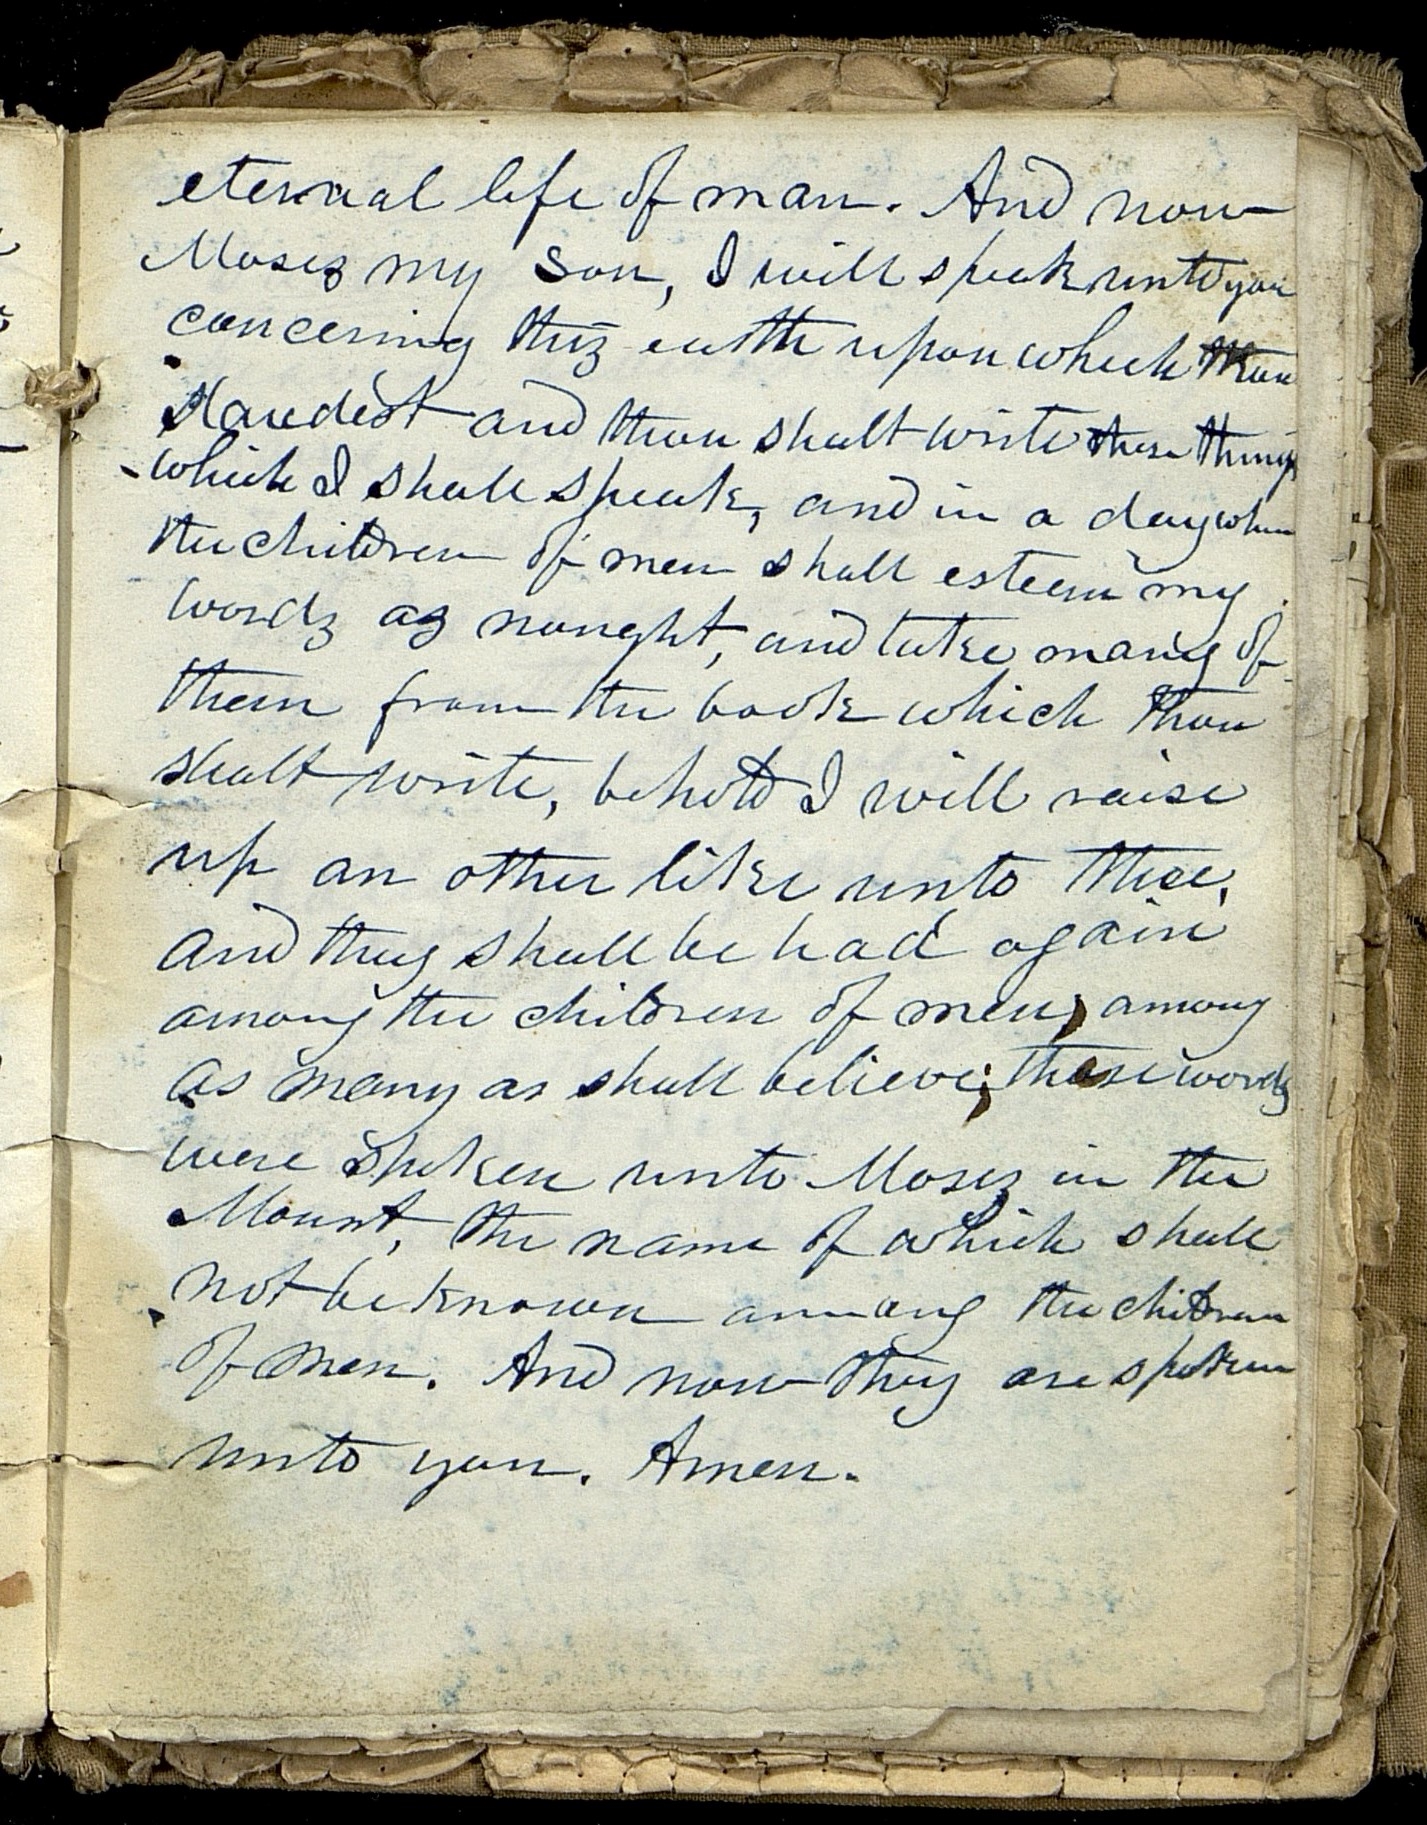 eternal life of man. And now
Moses my Son, I will speak unto you
concerning this earth upon which thou
standest and thou shalt write these things
which I shall speak, and in a day when
the children of men shall esteem my
words as nought, and take many of
them from the book which thou
shalt write, behold I will raise
up an other like unto thee,
and they shall be had again
among the children of men; among
as many as shall believe; these words
were spoken unto Moses in the
Mount, the name of which shall
not be known among the children
of men. And now they are spoken
unto you. Amen.